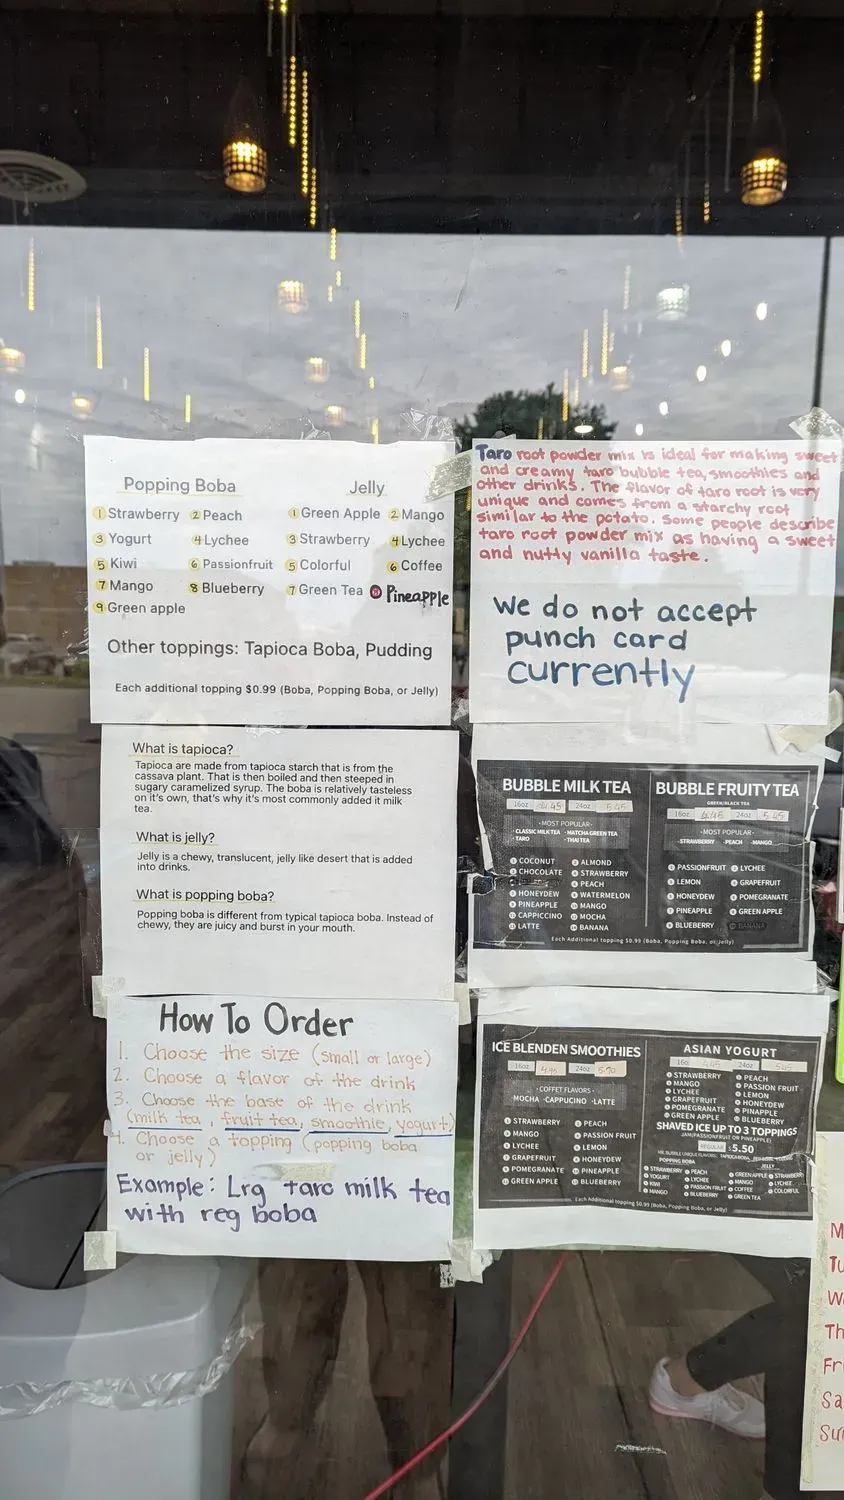 Popping Boba
1 Strawberry 2 Peach
3 Yogurt 4 Lychee
5 Kiwi 6 Passionfruit
7 Mango 8 Blueberry
9 Green apple
Jelly
1 Green Apple 2 Mango
3 Strawberry 4 Lychee
5 Colorful 6 Coffee
7 Green Tea Pineapple
Other toppings: Tapioca Boba, Pudding
Each additional topping $0.99 (Boba, Popping Boba, or Jelly)
Taro root powder mix is ideal for making sweet
and creamy taro bubble tea, smoothies and
other drinks. The flavor of taro root is very
unique and comes from a starchy root
similar to the potato. Some people describe
taro root powder mix as having a sweet
and nutty vanilla taste.
We do not accept
punch card
currently
What is tapioca?
Tapioca are made from tapioca starch that is from the
cassava plant. That is then boiled and then steeped in
sugary caramelized syrup. The boba is relatively tasteless
on it's own, that's why it's most commonly added it milk
tea.
What is jelly?
Jelly is a chewy, translucent, jelly like desert that is added
into drinks.
What is popping boba?
Popping boba is different from typical tapioca boba. Instead of
chewy, they are juicy and burst in your mouth.
BUBBLE MILK TEA
16oz 4.45 24oz 5.45
-MOST POPULAR-
·CLASSIC MILK TEA ·MATCHA GREEN TEA
·TARO ·THAI TEA
COCONUT ALMOND
CHOCOLATE STRAWBERRY
PEACH
HONEYDEW WATERMELON
PINEAPPLE MANGO
CAPPICCINO MOCHA
LATTE BANANA
BUBBLE FRUITY TEA
GREEN/BLACK TEA
16oz 4.45 24oz 5.45
-MOST POPULAR-
·STRAWBERRY ·PEACH ·MANGO
PASSIONFRUIT LYCHEE
LEMON GRAPEFRUIT
HONEYDEW POMEGRANATE
PINEAPPLE GREEN APPLE
BLUEBERRY BANANA
Each Additional topping $0.99 (Boba, Popping Boba, or Jelly)
How To Order
1. Choose the size (small or large)
2. Choose a flavor of the drink
3. Choose the base of the drink
(milk tea, fruit tea, smoothie, yogurt)
4. Choose a topping (popping boba
or jelly)
Example: Lrg taro milk tea
with reg boba
ICE BLENDEN SMOOTHIES
16oz 4.95 24oz 5.90
-COFFET FLAVORS-
MOCHA ·CAPPUCINO ·LATTE
STRAWBERRY PEACH
MANGO PASSION FRUIT
LYCHEE LEMON
GRAPEFRUIT HONEYDEW
POMEGRANATE PINEAPPLE
GREEN APPLE BLUEBERRY
ASIAN YOGURT
16oz 24oz
STRAWBERRY PEACH
MANGO PASSION FRUIT
LYCHEE LEMON
GRAPEFRUIT HONEYDEW
POMEGRANATE PINEAPPLE
GREEN APPLE BLUEBERRY
SHAVED ICE UP TO 3 TOPPINGS
JAM(PASSIONFRUIT OR PINEAPPLE)
REGULAR $5.50
POPPING BOBA JELLY
STRAWBERRY PEACH GREEN APPLE STRAWBERRY
YOGURT LYCHEE MANGO LYCHEE
KIWI PASSION FRUIT COFFEE COLORFUL
MANGO BLUEBERRY GREEN TEA
Each Additional topping $0.99 (Boba, Popping Boba, or Jelly)
M
Tu
We
Th
Fri
Sa
Su